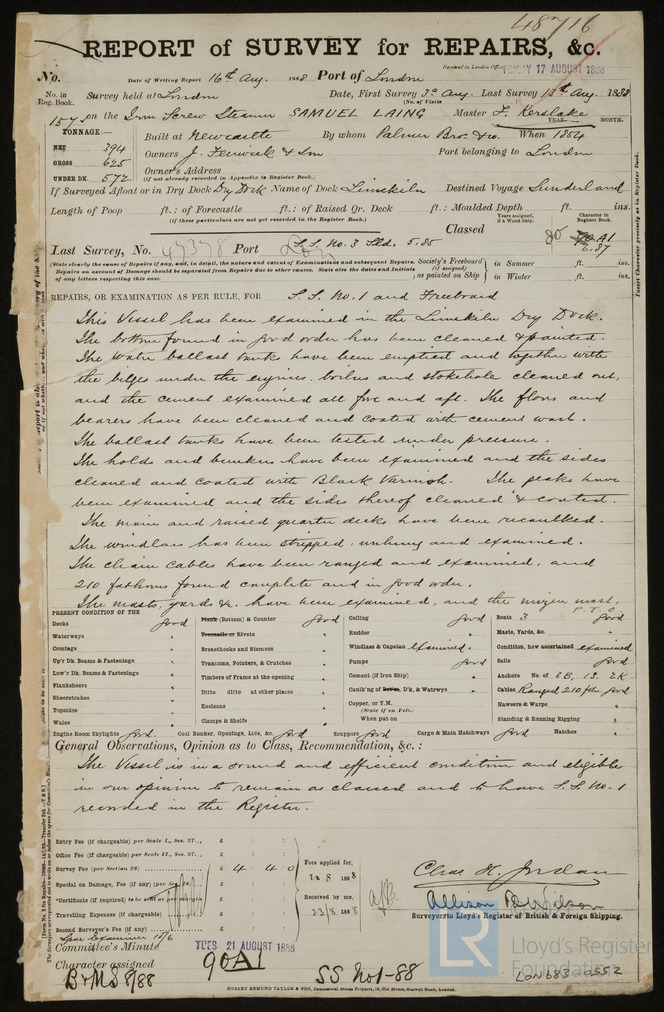 48716
REPORT of SURVEY for REPAIRS, &c.
Received in London Office, FRIDAY 17 AUGUST 1888
No. Date of Writing Report 16th Aug. 1888 Port of London
No. in Reg. Book. Survey held at London Date, First Survey 3rd Aug. Last Survey 13th Aug. 1888
(No. of Visits
on the Iron Screw Steamer SAMUEL LAING Master F. Kerslake
TONNAGE:— YEAR. MONTH.
NET 394 Built at Newcastle By whom Palmer Bros & Co. When 1854
GROSS 625 Owners J. Fenwick & Son Port belonging to London
UNDER DK. 572 Owner's Address
(if not already recorded in Appendix to Register Book.)
If Surveyed Afloat or in Dry Dock Dry Dock Name of Dock Limekiln Destined Voyage Sunderland
Length of Poop ft.: of Forecastle ft.: of Raised Qr. Deck ft.: Moulded Depth ft. ins.
(if these particulars are not yet recorded in the Register Book.)
Years assigned, if a Wood Ship. Character in Register Book.
Classed 90 A1
Last Survey, No. 47378 Port Lon S.S. No. 3 Sld. 5.85 6.87
(State clearly the cause of Repairs if any, and, in detail, the nature and extent of Examinations and subsequent Repairs.
Repairs on account of Damage should be separated from Repairs due to other causes. State also the dates and Initials of any letters respecting this case.
Society's Freeboard (if assigned) as painted on Ship in Summer ft. ins.
in Winter ft. ins.
REPAIRS, OR EXAMINATION AS PER RULE, FOR S.S. No. 1 and Freeboard
This Vessel has been examined in the Limekiln Dry Dock.
The bottom found in good order has been cleaned & painted.
The water ballast tanks have been emptied and together with
the bilges under the engines, boilers and stokehole cleaned out,
and the cement examined all fore and aft. The floors and
bearers have been cleaned and coated with cement wash.
The ballast tanks have been tested under pressure.
The holds and bunkers have been examined and the sides
cleaned and coated with Black Varnish. The peaks have
been examined and the sides thereof cleaned & coated.
The main and raised quarter decks have been recaulked.
The windlass has been stripped, unhung and examined.
The chain cables have been ranged and examined, and
210 fathoms found complete and in good order.
The masts, yards &c. have been examined, and the mizen mast,
P.T.O.
PRESENT CONDITION OF THE
Decks good
Waterways "
Comings "
Up'r Dk. Beams & Fastenings "
Low'r Dk. Beams & Fastenings "
Planksheers "
Sheerstrakes "
Topsides "
Wales "
Plank (Bottom) & Counter good
Treenails or Rivets "
Breasthooks and Stemson "
Transoms, Pointers, & Crutches "
Timbers of Frame at the opening
Ditto ditto at other places
Keelsons "
Clamps & Shelfs
Ceiling good
Rudder "
Windlass & Capstan examined.
Pumps good
Cement (if Iron Ship) "
Caulk'ng of Bot'm, D'k, & Watrwys "
Copper, or Y.M.
(State if on Felt.)
When put on
Boats 3 good
Masts, Yards, &c. "
Condition, how ascertained examined
Sails good
Anchors No. of 2B, 1S. 2K
Cables Ranged 210 fths. good
Hawsers & Warps "
Standing & Running Rigging "
Engine Room Skylights good. Coal Bunker, Openings, Lids, &c. good Scuppers good Cargo & Main Hatchways good Hatches "
General Observations, Opinion as to Class, Recommendation, &c. :
The Vessel is in a sound and efficient condition and eligible
in our opinion to remain as classed and to have S.S. No. 1
recorded in the Register.
Entry Fee (if chargeable) per Scale I., Sec. 27... £ : :
Office Fee (if chargeable) per Scale II., Sec. 27... £ : :
Survey Fee (per Section 28) £ 4 : 4 : 0
Special on Damage, Fee (if any) (per Sec. 28) £
*Certificate (if required) to be sent as per margin
Travelling Expenses (if chargeable) £
Second Surveyor's Fee (if any) £
Fees applied for, 22/8 1888
Received by me, 23/8 1888
Chas H. Jordan
Allison B. Wilson
Surveyors to Lloyd's Register of British & Foreign Shipping.
Committee's Minute TUES 21 AUGUST 1888
Character assigned 90A1
B&MS 8/88 SS No 1-88
ROBERT EDMUND TAYLOR & SON, Commercial Steam Printers, 19, Old Street, Goswell Road, London.
LR
Lloyd's Register
Foundation
LON683-0552
Insert Character precisely as in Register Book.